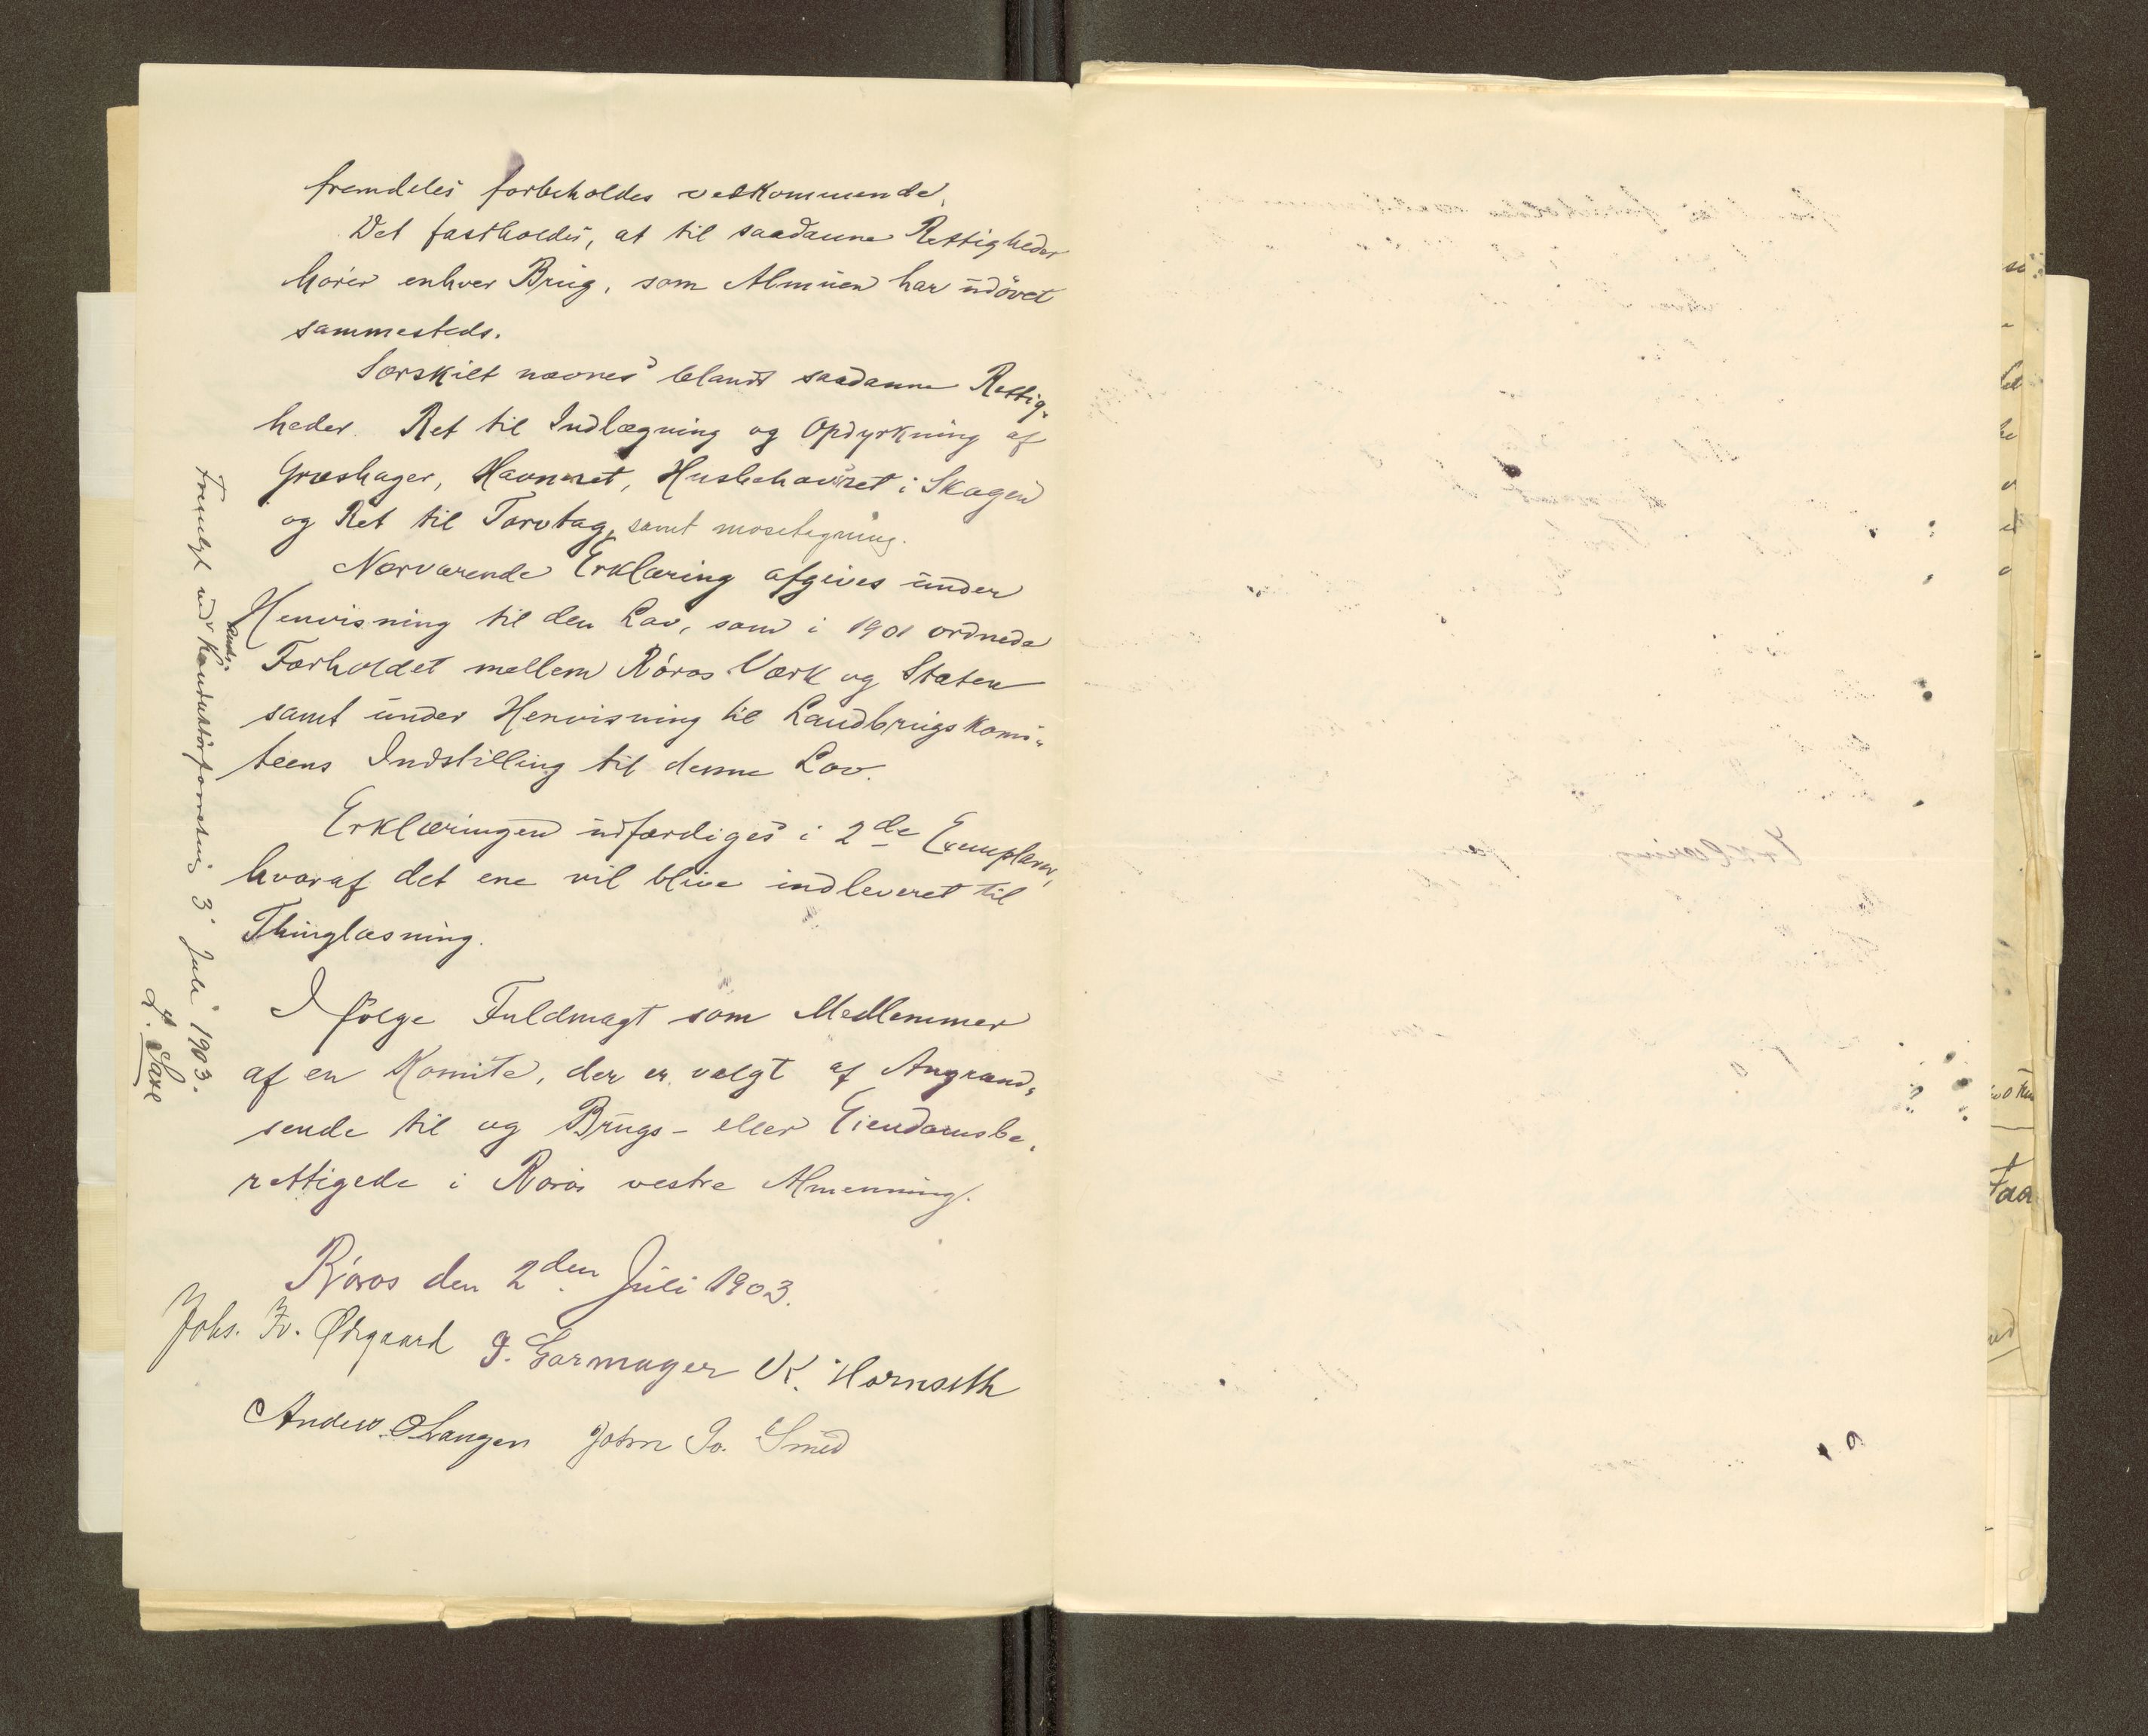 fremdeles forbeholdes vedkommende.
Det fastholdes, at til saadanne Rettigheder
hører enhver Brug, som Almuen har udøvet
sammesteds.
Særskilt nævnes blandt saadanne Rettig-
heder Ret til Indlægning og Opdyrkning af
Græshager, Havneret, Husbehovsret i Skogen
og Ret til Torvtag, samt mosetegning.
Nærværende Erklæring afgives under
Henvisning til den Lov, som i 1901 ordnede
Forholdet mellem Røros Værk og Staten
samt under Henvisning til Landbrugskomi-
teens Indstilling til denne Lov.
Erklæringen udfærdiges i 2de Exemplarer,
hvoraf det ene vil blive indleveret til
Thinglæsning.
I følge Fuldmagt som Medlemmer
af en Komite, der er valgt af Angrænd-
sende til og Brugs- eller Eiendomsbe-
rettigede i Røros vestre Almenning.
Røros den 2den Juli 1903.
Johs. Fr. Ødegaard J. Gormager K. Harnseth
Anders. O Langen John Jo. Smed
Fremlagt ved Konduktørforretning 3 Juli 1903.
L. Saxe